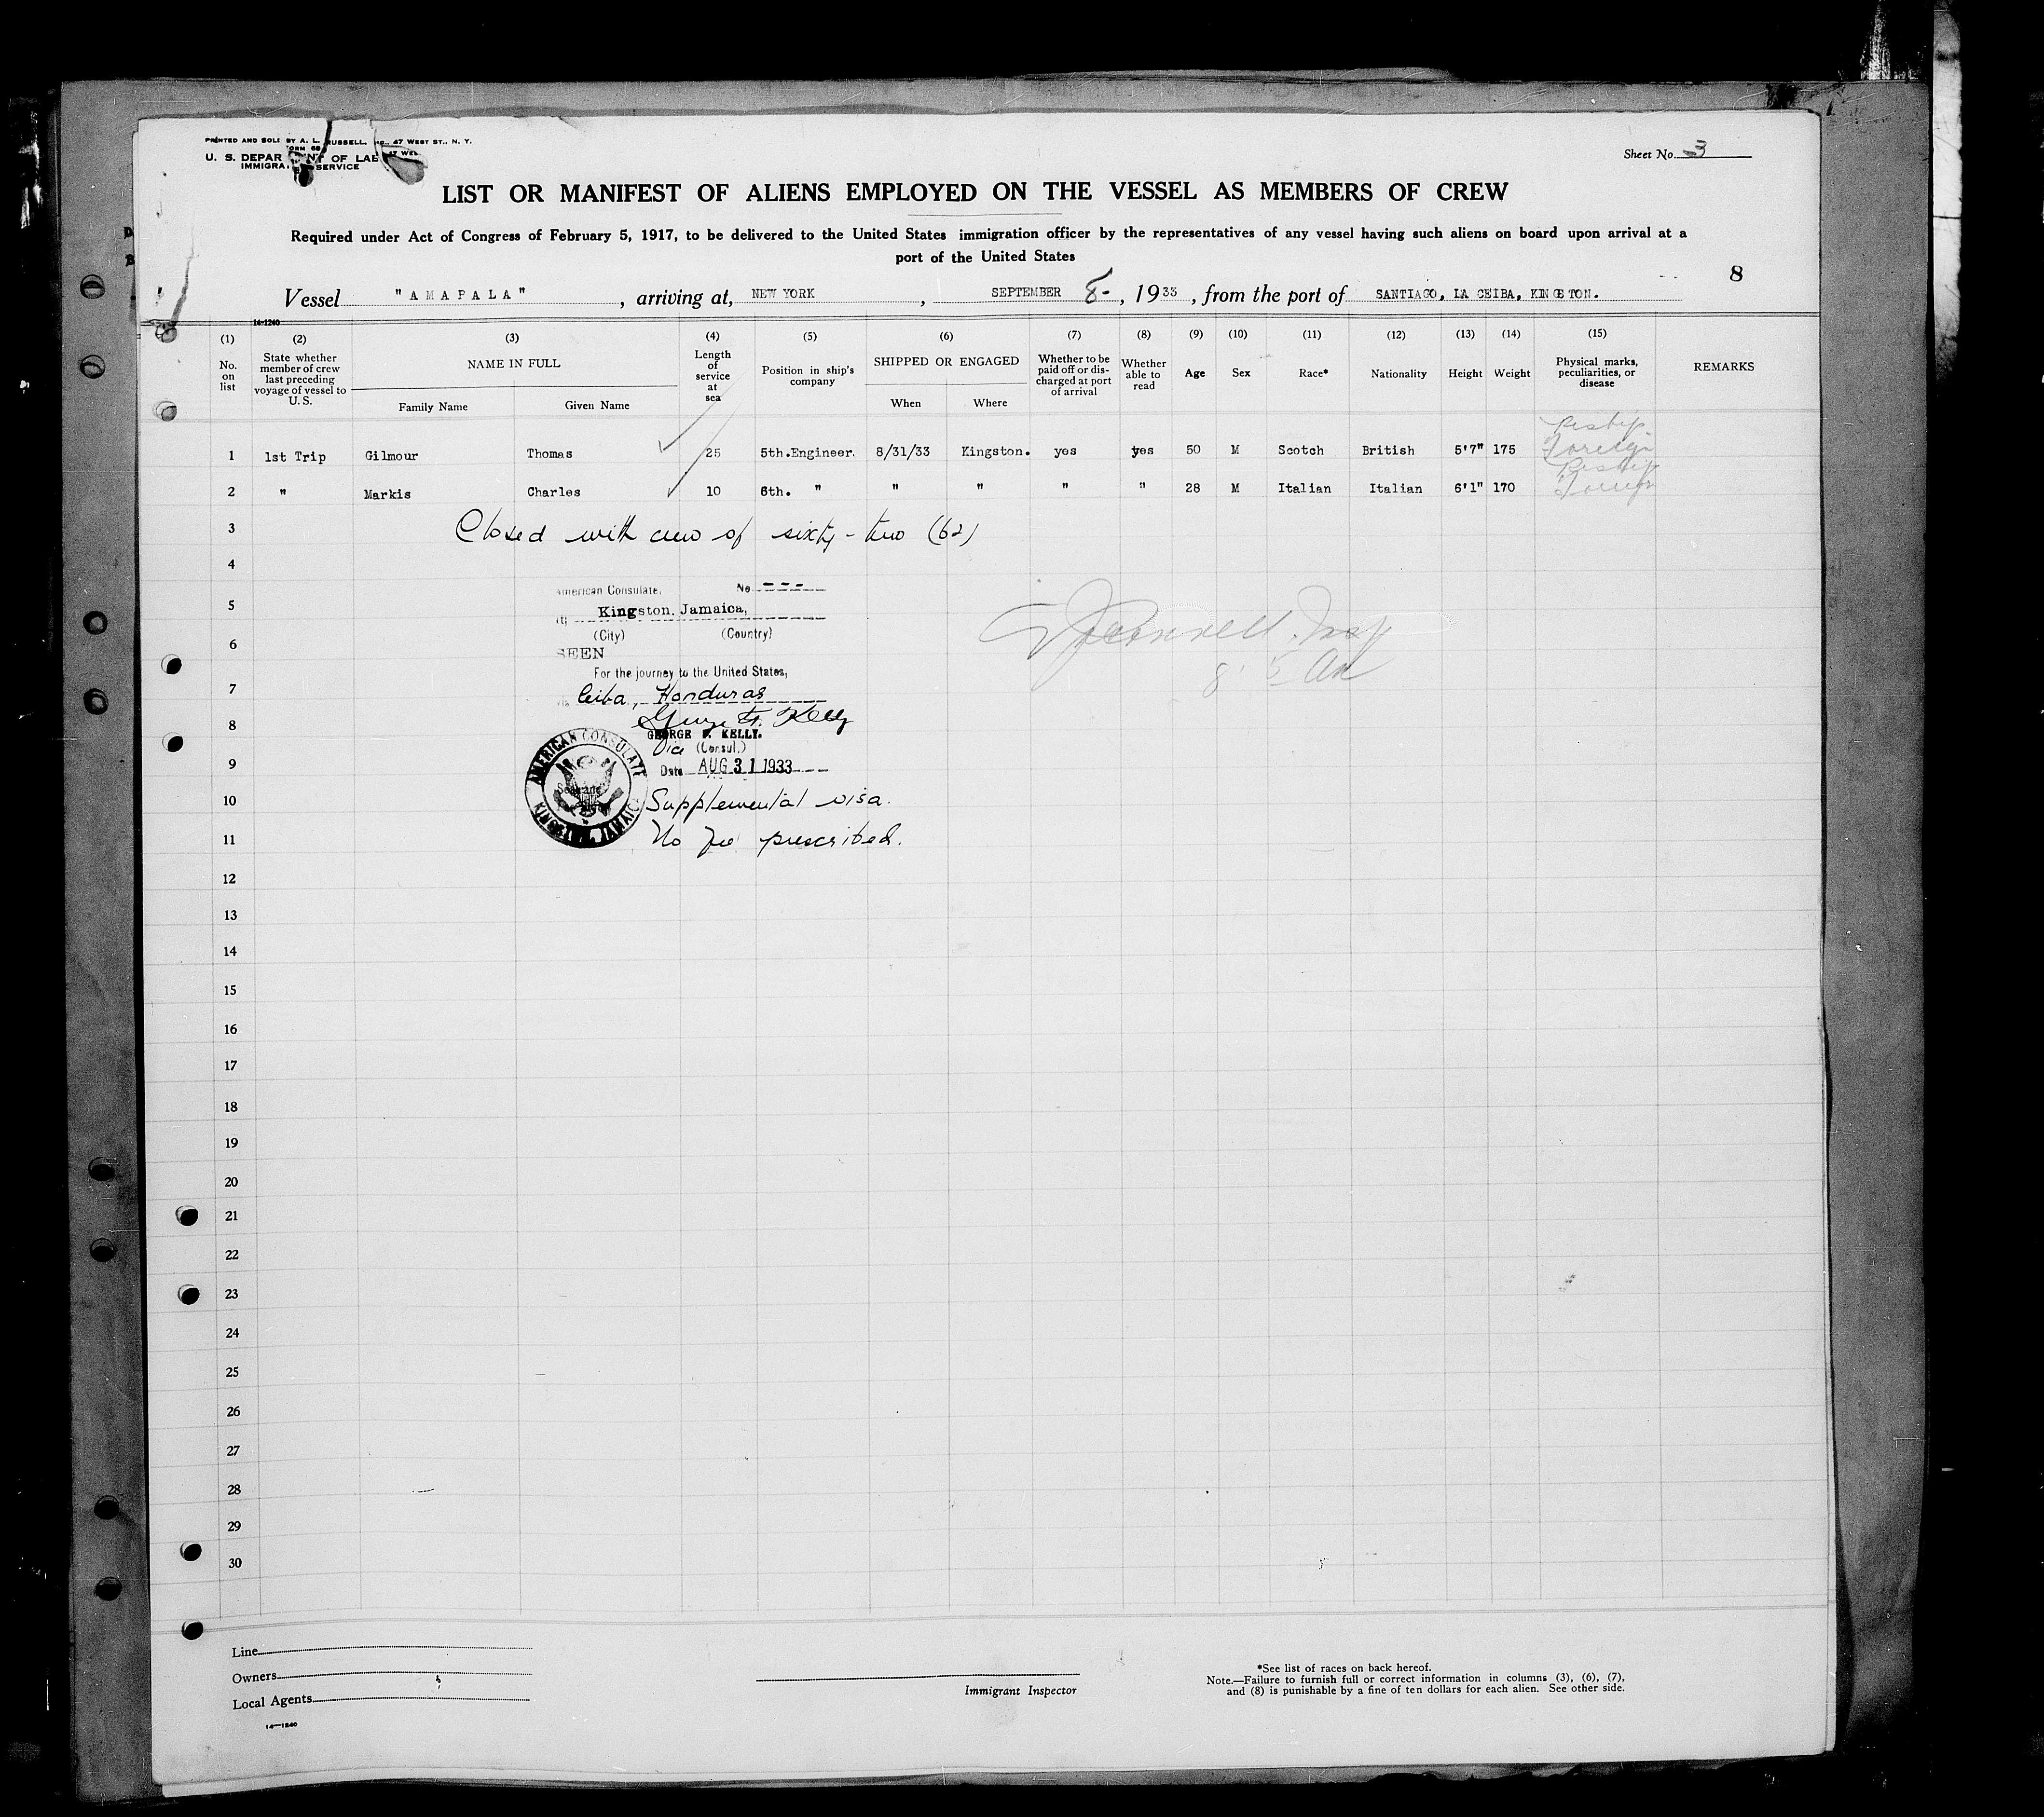 PRINTED AND SOLD BY A. L. RUSSELL, INC., 47 WEST ST., N. Y.
U. S. DEPARTMENT OF LABOR
IMMIGRATION SERVICE
Sheet No. 3
LIST OR MANIFEST OF ALIENS EMPLOYED ON THE VESSEL AS MEMBERS OF CREW
Required under Act of Congress of February 5, 1917, to be delivered to the United States immigration officer by the representatives of any vessel having such aliens on board upon arrival at a
port of the United States
8
Vessel "AMAPALA", arriving at, NEW YORK, SEPTEMBER 8-, 1933, from the port of SANTIAGO, LA CEIBA, KINGSTON.
14-1240
(1) (2) (3) (4) (5) (6) (7) (8) (9) (10) (11) (12) (13) (14) (15)
No. on list
State whether member of crew last preceding voyage of vessel to U. S.
NAME IN FULL
Family Name
Given Name
Length of service at sea
Position in ship's company
SHIPPED OR ENGAGED
When
Where
Whether to be paid off or discharged at port of arrival
Whether able to read
Age
Sex
Race*
Nationality
Height
Weight
Physical marks, peculiarities, or disease
REMARKS
1 1st Trip Gilmour Thomas 25 5th.Engineer. 8/31/33 Kingston. yes yes 50 M Scotch British 5'7" 175 Reship Foreign
2 " Markis Charles 10 6th. " " " " " 28 M Italian Italian 6'1" 170 Reship
3 Closed with crew of sixty-two (62)
4
American Consulate, No. ---
5
at Kingston, Jamaica,
(City) (Country)
6
SEEN
For the journey to the United States,
7
Ceiba, Honduras
George F. Kelly
8
GEORGE F. KELLY.
Vice (Consul.)
9
Date AUG 31 1933
AMERICAN CONSULATE
KINGSTON, JAMAICA
10 Supplemental visa.
11 No fee prescribed.
12
13
14
15
16
17
18
19
20
21
22
23
24
25
26
27
28
29
30
Line
Owners
Local Agents
14-1240
Immigrant Inspector
*See list of races on back hereof.
Note.—Failure to furnish full or correct information in columns (3), (6), (7),
and (8) is punishable by a fine of ten dollars for each alien. See other side.